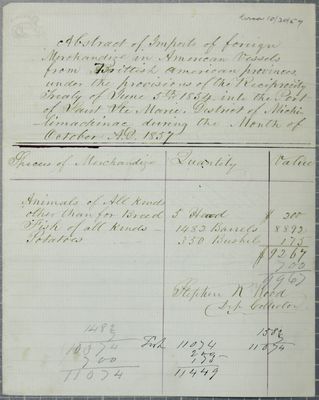 Abstract of Imports of foreign
Merchandize in American Vessels
from Brittish American provinces
under the provisions of the Reciprocity
Treaty of June 5th 1854 into the Port
of Saint Ste Marie, District of Michi-
limacinac during the Month of
October A.D. 1857
Species of Merchandize Quantity Value
Animals of All Kinds
other than for Breed 5 Head $ 200
Fish of all Kinds - 1482 Barrels 8892
Potatoes 350 Bushels 175
$9267
700
9967
Stephen R Wood
Dep Collector
1482 1582
10374 Fish 11074 11074
700 200
11074 175
11449